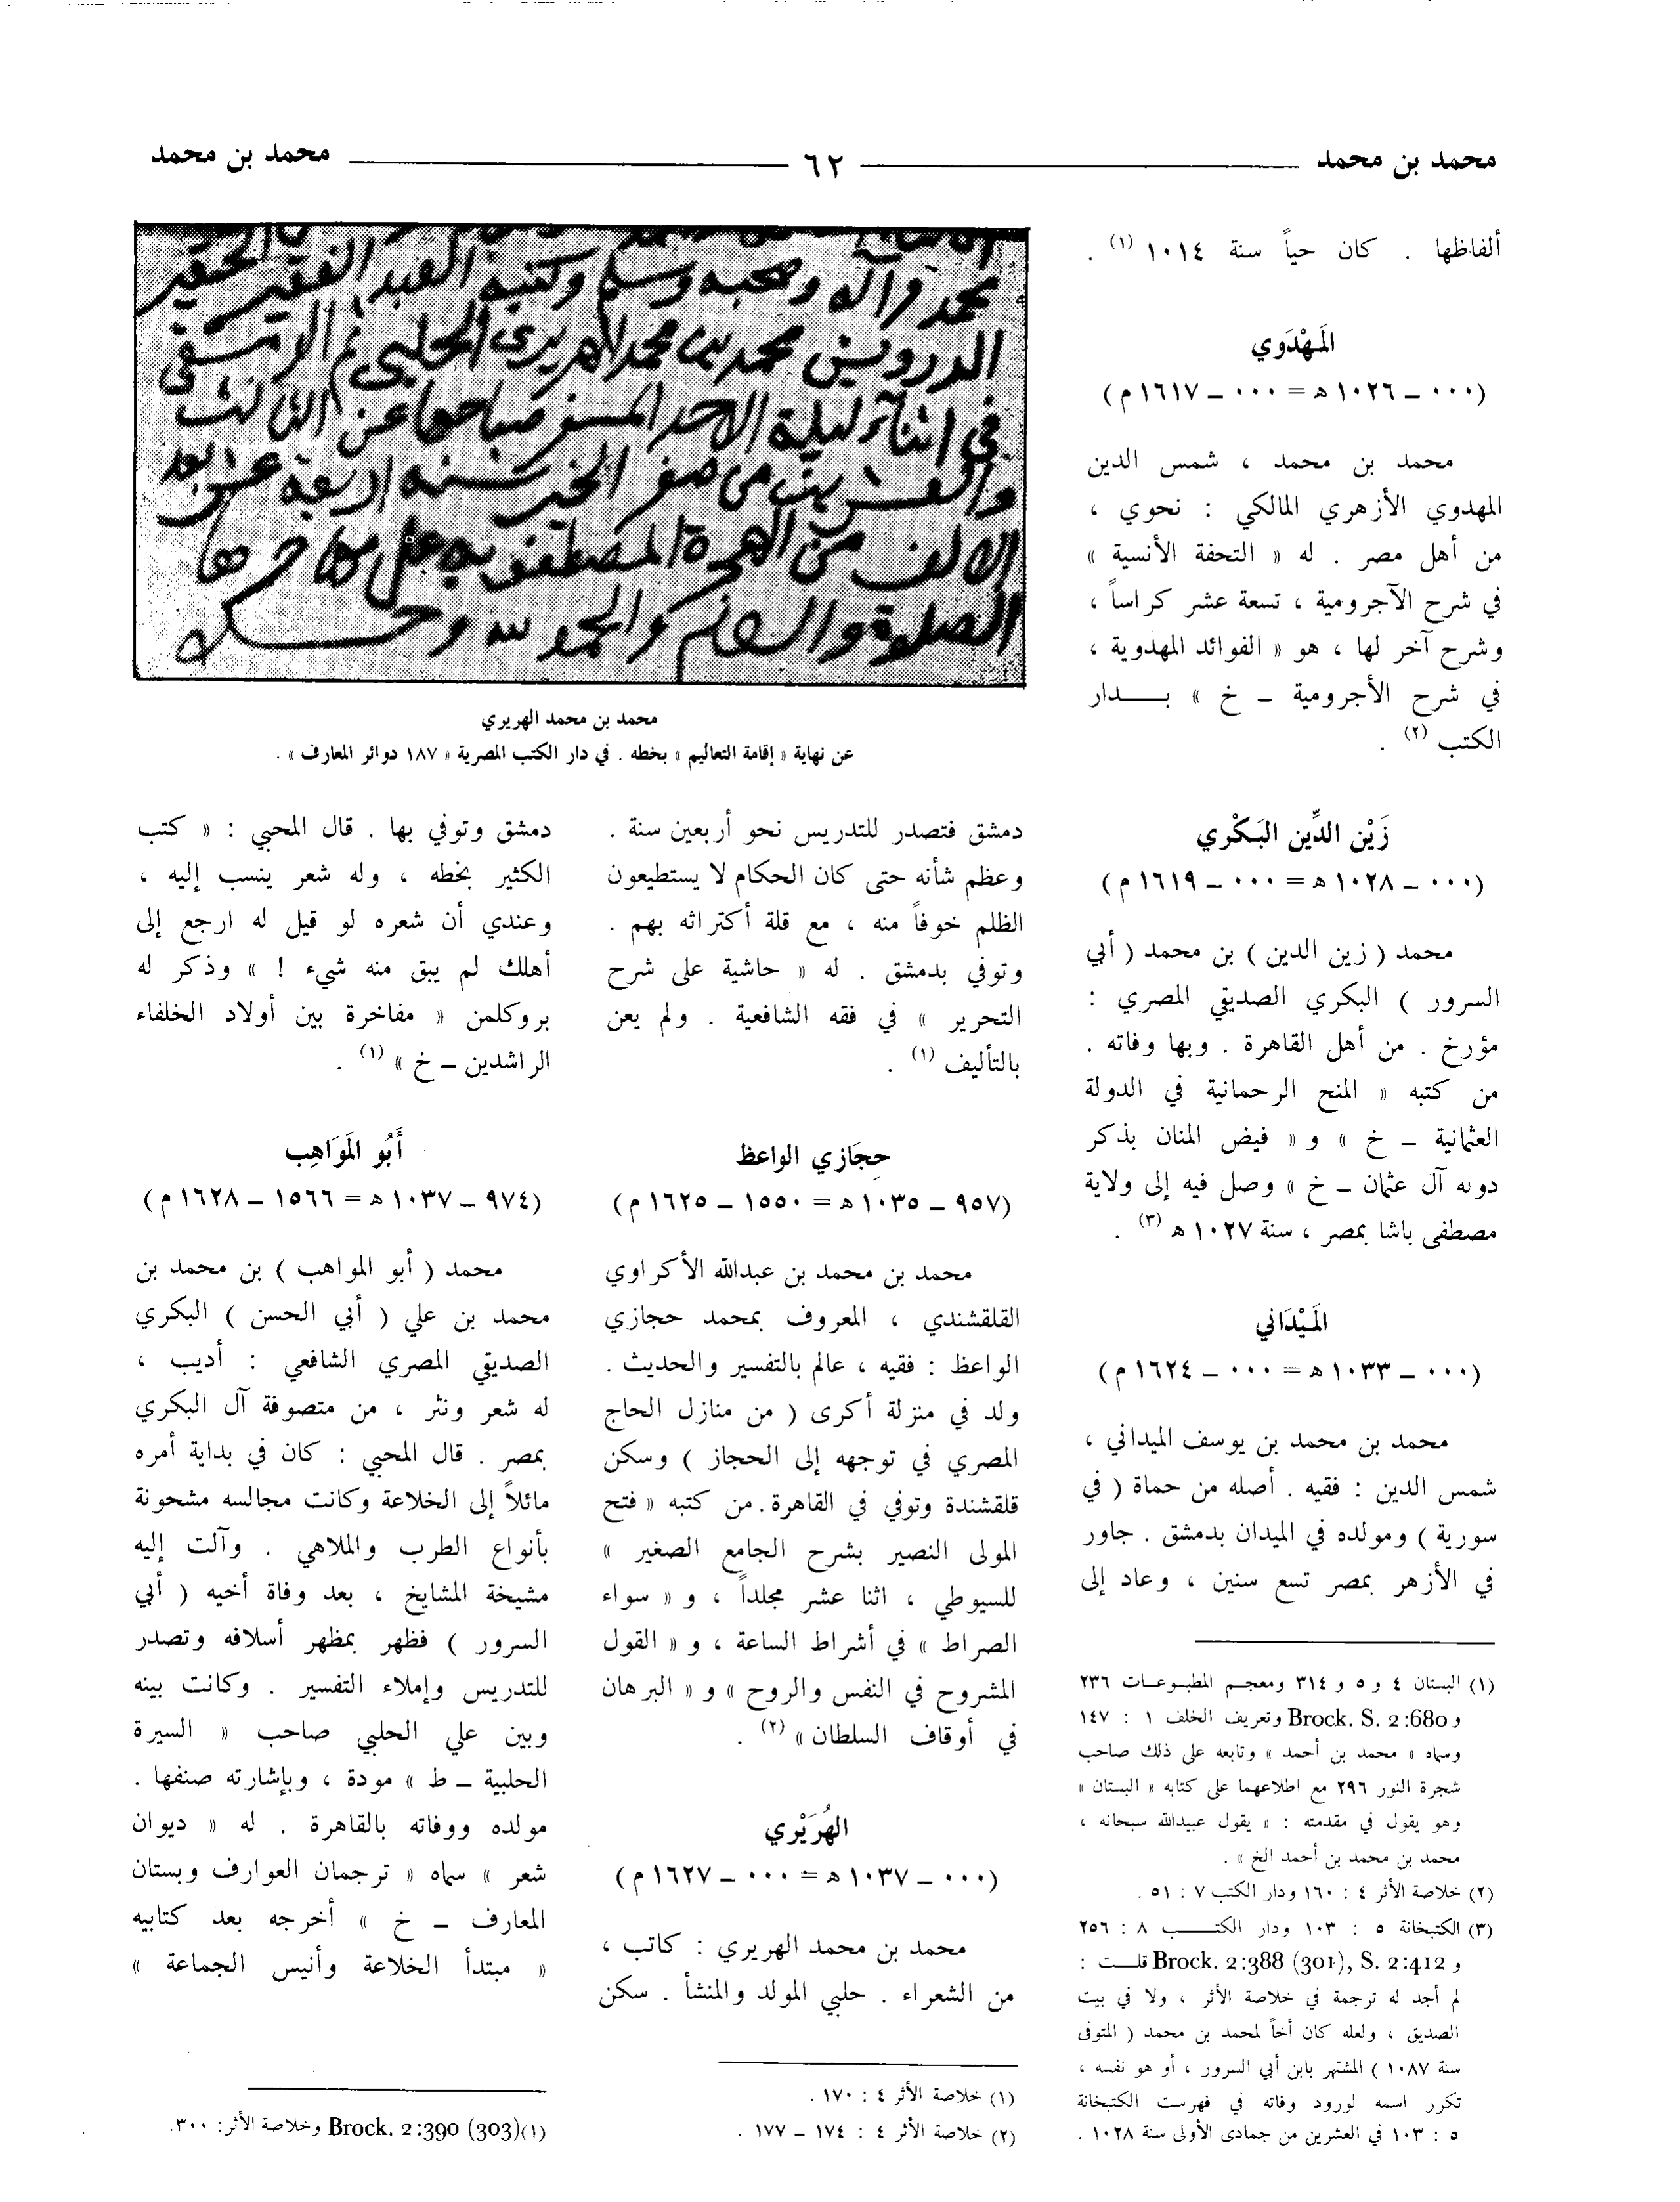 محمد بن محمد
٦٢
محمد بن محمد
ألفاظها . كان حياً سنة ١٠١٤ (١) .
المَهْدَوي
(٠٠٠ – ١٠٢٦ ه = ٠٠٠ – ١٦١٧ م)
محمد بن محمد ، شمس الدين
المهدوي الأزهري المالكي : نحوي ،
من أهل مصر . له « التحفة الأنسية »
في شرح الآجرومية ، تسعة عشر كراساً ،
وشرح آخر لها ، هو « الفوائد المهدوية ،
في شرح الأجرومية – خ » بــدار
الكتب (٢) .
زَيْن الدِّين البَكْري
(٠٠٠ – ١٠٢٨ ه = ٠٠٠ – ١٦١٩ م)
محمد ( زين الدين ) بن محمد ( أبي
السرور ) البكري الصديقي المصري :
مؤرخ . من أهل القاهرة . وبها وفاته .
من كتبه « المنح الرحمانية في الدولة
العثمانية – خ » و « فيض المنان بذكر
دولة آل عثمان – خ » وصل فيه إلى ولاية
مصطفى باشا بمصر ، سنة ١٠٢٧ ه (٣) .
المَيْدَاني
(٠٠٠ – ١٠٣٣ ه = ٠٠٠ – ١٦٢٤ م)
محمد بن محمد بن يوسف الميداني ،
شمس الدين : فقيه . أصله من حماة ( في
سورية ) ومولده في الميدان بدمشق . جاور
في الأزهر بمصر تسع سنين ، وعاد إلى
(١) البستان ٤ و ٥ و ٣١٤ ومعجـم المطبوعـات ٢٣٦
و Brock. S. 2:680 وتعريف الخلف ١ : ١٤٧
وسماه « محمد بن أحمد » وتابعه على ذلك صاحب
شجرة النور ٢٩٦ مع اطلاعهما على كتابه « البستان »
وهو يقول في مقدمته : « يقول عبيدالله سبحانه ،
محمد بن محمد بن أحمد الخ » .
(٢) خلاصة الأثر ٤ : ١٦٠ ودار الكتب ٧ : ٥١ .
(٣) الكتبخانة ٥ : ١٠٣ ودار الكتــب ٨ : ٢٥٦
و Brock. 2:388 (301), S. 2:412 قلــت :
لم أجد له ترجمة في خلاصة الأثر ، ولا في بيت
الصديق ، ولعله كان أخاً لمحمد بن محمد ( المتوفى
سنة ١٠٨٧ ) المشتهر بابن أبي السرور ، أو هو نفسه ،
تكرر اسمه لورود وفاته في فهرست الكتبخانة
٥ : ١٠٣ في العشرين من جمادى الأولى سنة ١٠٢٨ .
محمد وآله وصحبه وسلم وكتبه العبد الفقير الحقير
الدرويش محمد بن محمد الهريري الحلبي ثم الدمشقي
في اثناء ليلة الاحد المسفر صباحها عن الثالث
والعشرين من صفر الخير سنة اربعة عشر بعد
الالف من الهجرة المصطفوية على مهاجرها
الصلوة والسلام والحمد لله وحده
محمد بن محمد الهريري
عن نهاية « إقامة التعاليم » بخطه . في دار الكتب المصرية « ١٨٧ دوائر المعارف » .
دمشق فتصدر للتدريس نحو أربعين سنة .
وعظم شأنه حتى كان الحكام لا يستطيعون
الظلم خوفاً منه ، مع قلة أكتراثه بهم .
وتوفي بدمشق . له « حاشية على شرح
التحرير » في فقه الشافعية . ولم يعن
بالتأليف (١) .
حِجَازي الواعظ
(٩٥٧ – ١٠٣٥ ه = ١٥٥٠ – ١٦٢٥ م)
محمد بن محمد بن عبدالله الأكراوي
القلقشندي ، المعروف بمحمد حجازي
الواعظ : فقيه ، عالم بالتفسير والحديث .
ولد في منزلة أكرى ( من منازل الحاج
المصري في توجهه إلى الحجاز ) وسكن
قلقشندة وتوفي في القاهرة . من كتبه « فتح
المولى النصير بشرح الجامع الصغير »
للسيوطي ، اثنا عشر مجلداً ، و « سواء
الصراط » في أشراط الساعة ، و « القول
المشروح في النفس والروح » و « البرهان
في أوقاف السلطان » (٢) .
الهُرَيْري
(٠٠٠ – ١٠٣٧ ه = ٠٠٠ – ١٦٢٧ م)
محمد بن محمد الهريري : كاتب ،
من الشعراء . حلبي المولد والمنشأ . سكن
(١) خلاصة الأثر ٤ : ١٧٠ .
(٢) خلاصة الأثر ٤ : ١٧٤ – ١٧٧ .
دمشق وتوفي بها . قال المحبي : « كتب
الكثير بخطه ، وله شعر ينسب إليه ،
وعندي أن شعره لو قيل له ارجع إلى
أهلك لم يبق منه شيء ! » وذكر له
بروكلمن « مفاخرة بين أولاد الخلفاء
الراشدين – خ » (١) .
أَبُو المَوَاهِب
(٩٧٤ – ١٠٣٧ ه = ١٥٦٦ – ١٦٢٨ م)
محمد ( أبو المواهب ) بن محمد بن
محمد بن علي ( أبي الحسن ) البكري
الصديقي المصري الشافعي : أديب ،
له شعر ونثر ، من متصوفة آل البكري
بمصر . قال المحبي : كان في بداية أمره
مائلاً إلى الخلاعة وكانت مجالسه مشحونة
بأنواع الطرب والملاهي . وآلت إليه
مشيخة المشايخ ، بعد وفاة أخيه ( أبي
السرور ) فظهر بمظهر أسلافه وتصدر
للتدريس وإملاء التفسير . وكانت بينه
وبين علي الحلبي صاحب « السيرة
الحلبية – ط » مودة ، وبإشارته صنفها .
مولده ووفاته بالقاهرة . له « ديوان
شعر » سماه « ترجمان العوارف وبستان
المعارف – خ » أخرجه بعد كتابيه
« مبتدأ الخلاعة وأنيس الجماعة »
(١) Brock. 2:390 (303) وخلاصة الأثر : ٣٠٠.